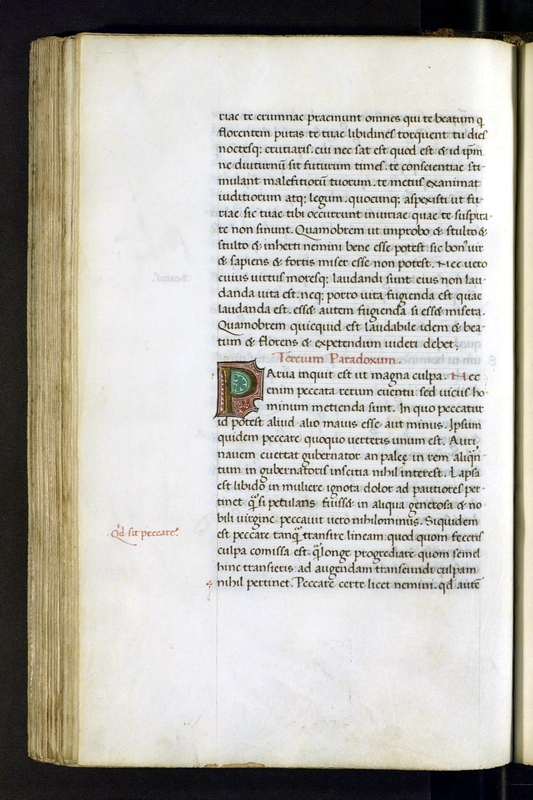 riae te erumnae praemunt omnes qui te beatum q̨
florentem putas te tuae libidines torquent tu dies
noctesq; cruciaris. cui nec sat est quod est & id ipm̄
ne diuturnū sit futurum times. te conscientiae sti-
mulant malefitiorū tuorum. te metus exanimat
iuditiorum atq; legum. quocunq; aspexisti ut fu-
riae sic tuae tibi occurrunt iniuriae quae te suspira-
re non sinunt. Quamobrem ut improbo & stulto &
stulto & inherti nemini bene esse potest sic bonꝰ uir
& sapiens & fortis miser esse non potest. Nec uero
cuius uirtus moresq; laudandi sunt eius non lau-
danda uita est. neq; porro uita fugienda est quae
laudanda est. esset autem fugienda si esset misera.
Quamobrem quicquid est laudabile idem & bea-
tum & florens & expetendum uideri debet;
Tercium Paradoxum.
PArua inquit est ut magna culpa. Nec
enim peccata rerum euentu sed uiciis ho-
minum metienda sunt. In quo peccatur
id potest aliud alio maius esse aut minus. Ipsum
quidem peccare quoquo uerteris unum est. Auri
nauem euertat gubernator an paleę in rem aliqn̄
tum in gubernatoris inscitia nihil interest. Lapsa
est libido in muliere ignota dolor ad pautiores per-
tinet q̃ si petulans fuisset in aliqua generosa & no
bili uirgine peccauit uero nihilominus. Siquidem
est peccare tanq̃ transire lineam. quod quom feceris
culpa comissa est. q̃ longe progrediare quom semel
hinc transieris ad augendam transeundi culpam
nihil pertinet. Peccare certe licet nemini. qđ autē
Qđ sit peccare